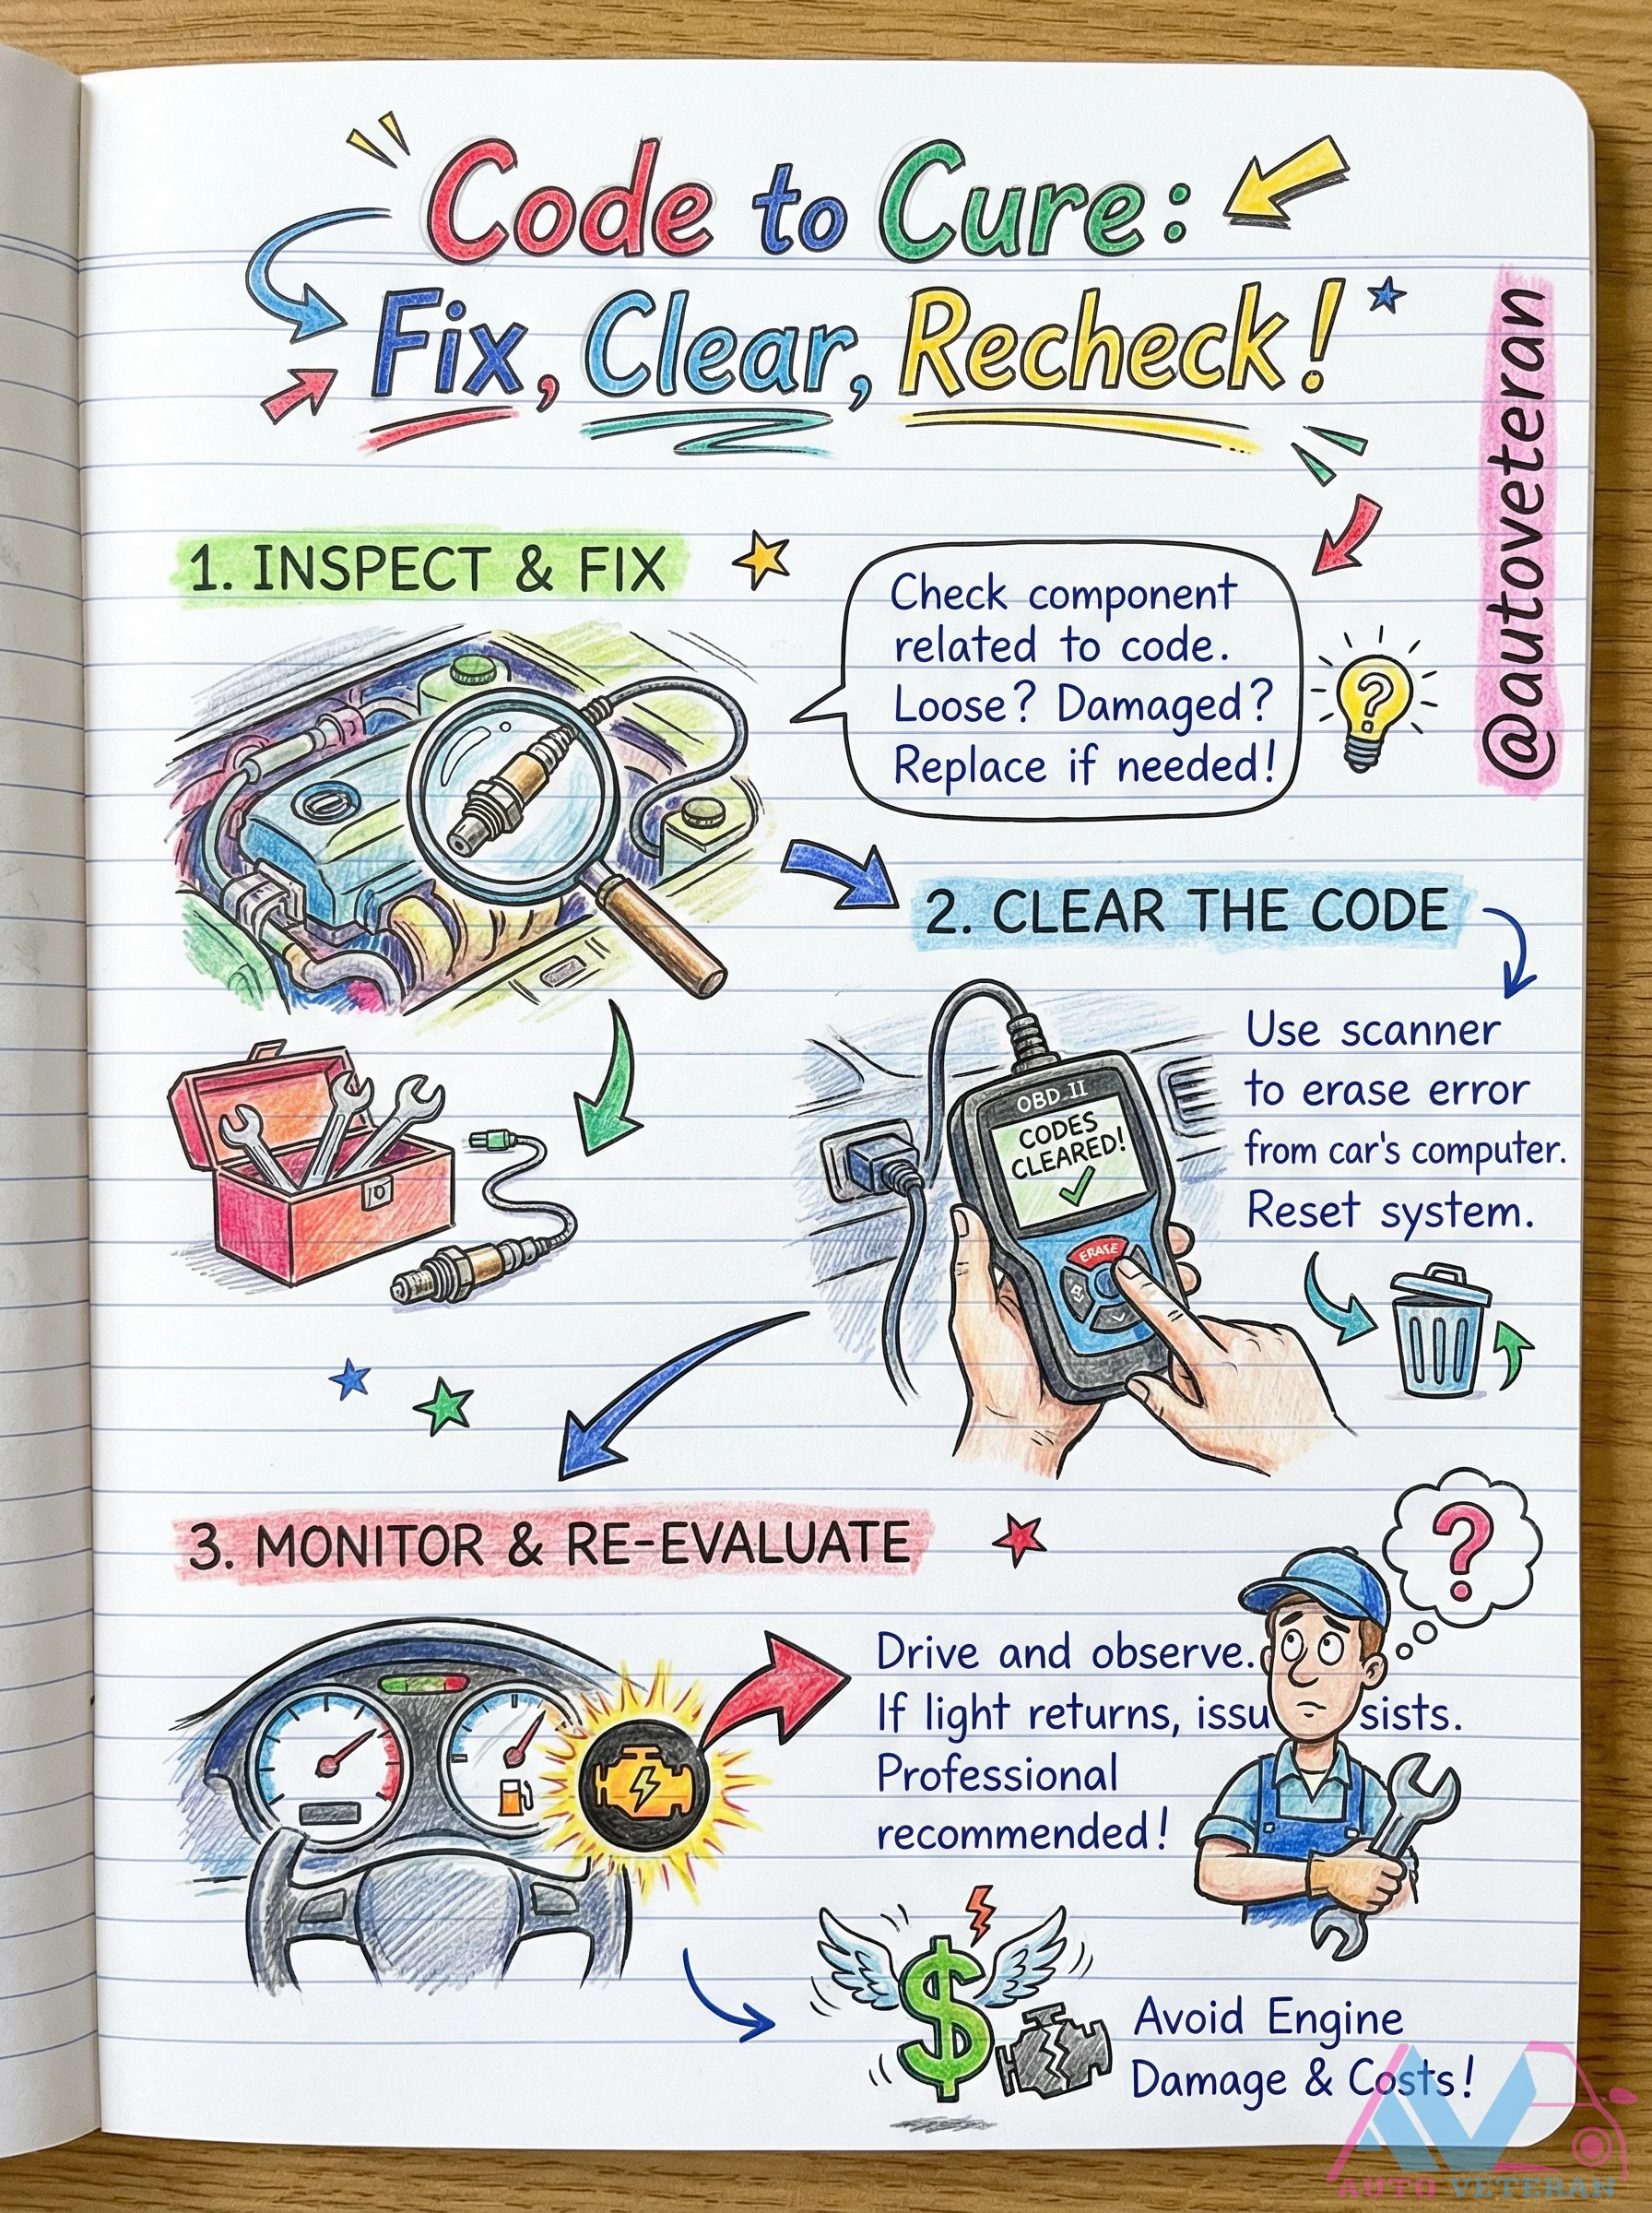 Code to Cure:
Fix, Clear, Recheck!
@autoveteran
1. INSPECT & FIX
Check component
related to code.
Loose? Damaged?
Replace if needed!
?
2. CLEAR THE CODE
Use scanner
to erase error
from car's computer.
Reset system.
OBD II
CODES
CLEARED!
ERASE
3. MONITOR & RE-EVALUATE
?
Drive and observe.
If light returns, issu sists.
Professional
recommended!
$
Avoid Engine
Damage & Costs!
AV
AUTO VETERAN